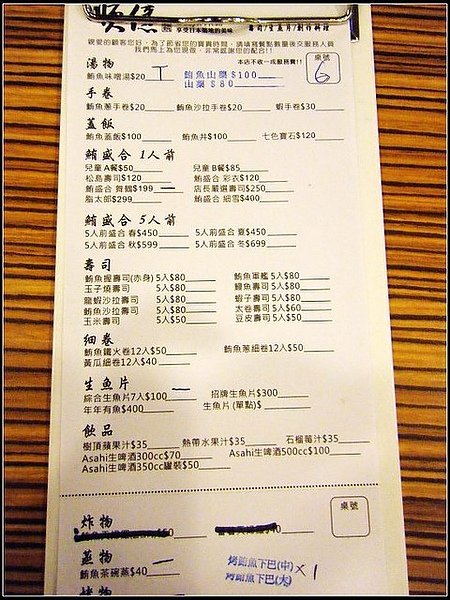 順億
享受日本築地的美味
壽司/生魚片/創作料理
親愛的顧客您好，為了節省您的寶貴時間，請填寫餐點數量後交服務人員
我們馬上為您現做，非常感謝您的配合!!
本店不收一成服務費!!
桌號
6
湯物
鮪魚味噌湯$20 T
鮪魚山藥$100
山藥$80
手卷
鮪魚蔥手卷$20 鮪魚沙拉手卷$20 蝦手卷$30
蓋飯
鮪魚蓋飯$100 鮪魚丼$100 七色寶石$120
鮪盛合 1人前
兒童A餐$50 兒童B餐$85
松島壽司$120 鮪盛合 彩衣$120
鮪盛合 舞鶴$199 一 店長嚴選壽司$250
脂太郎$299 鮪盛合 細雪$400
鮪盛合 5人前
5人前盛合 春$450 5人前盛合 夏$450
5人前盛合 秋$599 5人前盛合 冬$699
壽司
鮪魚握壽司(赤身) 5入$80 鮪魚軍艦 5入$80
玉子燒壽司 5入$80 鰻魚壽司 5入$80
龍蝦沙拉壽司 5入$80 蝦子壽司 5入$80
鮪魚沙拉壽司 5入$80 太卷壽司 5入$60
玉米壽司 5入$50 豆皮壽司 5入$50
細卷
鮪魚鐵火卷12入$50 鮪魚蔥細卷12入$50
黃瓜細卷12入$40
生魚片
綜合生魚片7入$100 一 招牌生魚片$300
年年有魚$400 生魚片(單點)$
飲品
樹頂蘋果汁$35 熱帶水果汁$35 石榴莓汁$35
Asahi生啤酒300cc$70 Asahi生啤酒500cc$100
Asahi生啤酒350cc罐裝$50
炸物
桌號
蒸物
鮪魚茶碗蒸$40 一
烤鮪魚下巴(中) x 1
烤鮪魚下巴(大)
烤物